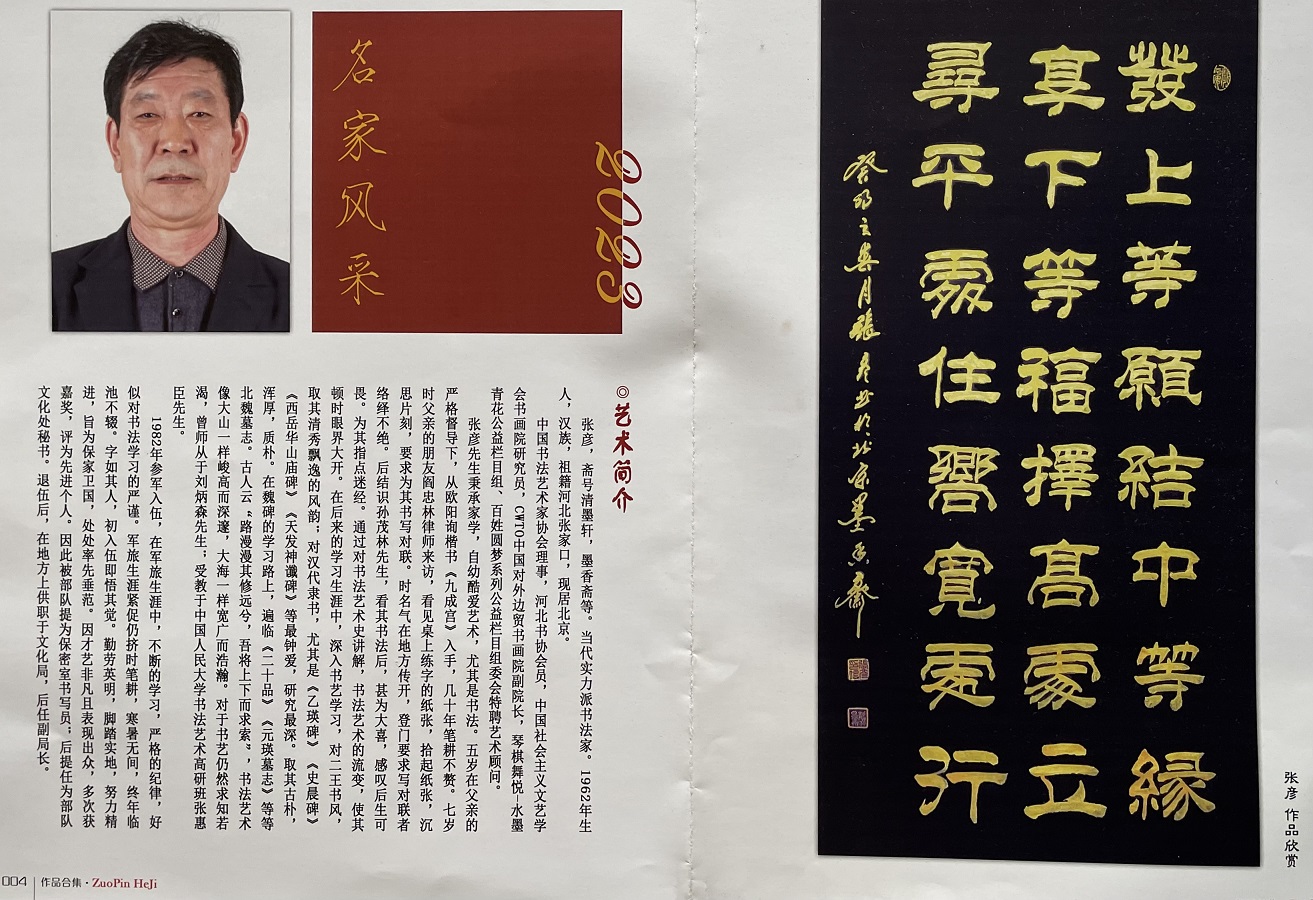 名家风采
2023
◎艺术简介
张彦，斋号清墨轩，墨香斋等。当代实力派书法家。1962年生
人，汉族，祖籍河北张家口，现居北京。
中国书法艺术家协会理事，河北书协会员，中国社会主义文艺学
会书画院研究员，CWTO中国对外边贸书画院副院长，琴棋舞悦—水墨
青花公益栏目组、百姓圆梦系列公益栏目组委会特聘艺术顾问。
张彦先生秉承家学，自幼酷爱艺术，尤其是书法。五岁在父亲的
严格督导下，从欧阳询楷书《九成宫》入手，几十年笔耕不赘。七岁
时父亲的朋友阎忠林律师来访，看见桌上练字的纸张，拾起纸张，沉
思片刻，要求为其书写对联。时名气在地方传开，登门要求写对联者
络绎不绝。后结识孙茂林先生，看其书法后，甚为大喜，感叹后生可
畏。为其指点迷经。通过对书法艺术史讲解，书法艺术的流变，使其
顿时眼界大开。在后来的学习生涯中，深入书艺学习，对二王书风，
取其清秀飘逸的风韵；对汉代隶书，尤其是《乙瑛碑》《史晨碑》
《西岳华山庙碑》《天发神谶碑》等最钟爱，研究最深。取其古朴，
浑厚，质朴。在魏碑的学习路上，遍临《二十品》《元瑛墓志》等等
北魏墓志。古人云“路漫漫其修远兮，吾将上下而求索”，书法艺术
像大山一样峻高而深邃，大海一样宽广而浩瀚。对于书艺仍然求知若
渴，曾师从于刘炳森先生；受教于中国人民大学书法艺术高研班张惠
臣先生。
1982年参军入伍，在军旅生涯中，不断的学习，严格的纪律，好
似对书法学习的严谨。军旅生涯紧促仍挤时笔耕，寒暑无间，终年临
池不辍。字如其人，初入伍即悟其觉。勤劳英明，脚踏实地，努力精
进，旨为保家卫国，处处率先垂范。因才艺非凡且表现出众，多次获
嘉奖，评为先进个人。因此被部队提为保密室书写员；后提任为部队
文化处秘书。退伍后，在地方上供职于文化局，后任副局长。
004 作品合集·ZuoPin HeJi
發上等願結中等緣
享下等福擇高處立
尋平處住嚮寬處行
癸卯之癸月張彦書於北京墨香齋
张彦 作品欣赏